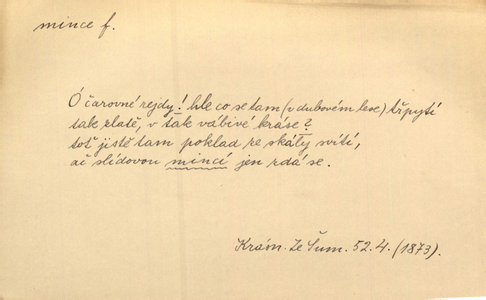 mince f.
Ó čarovné rejdy! hle co se tam (v dubovém lese) třpytí
tak zlatě, v tak vábivé kráse?
toť jistě tam poklad ze skály svítí,
ač slídovou mincí jen zdá se.
Krám. Ze Šum. 52.4. (1873).